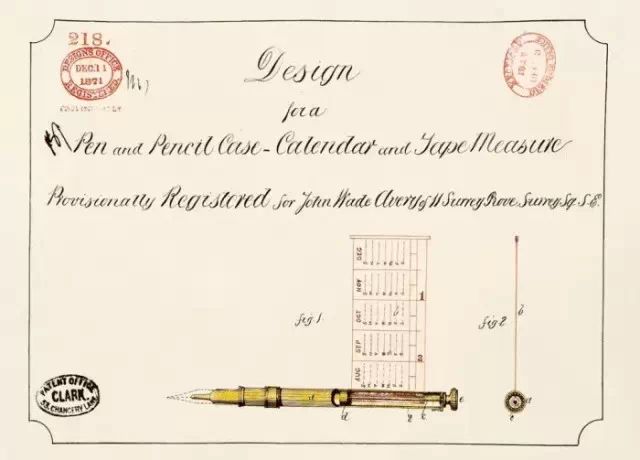 218.
DESIGNS OFFICE
DEC. 11
1871
REGISTERED
Design
for a
Pen and Pencil Case - Calendar and Tape Measure
Provisionally Registered for John Wade Avery of 11 Surrey Grove, Surrey Sq. S.E.
DEC
NOV
OCT
SEP
AUG
1
2
b
fig 1
a
d
c
e
fig 2
b
PATENT OFFICE
CLARK
53, CHANCERY LANE